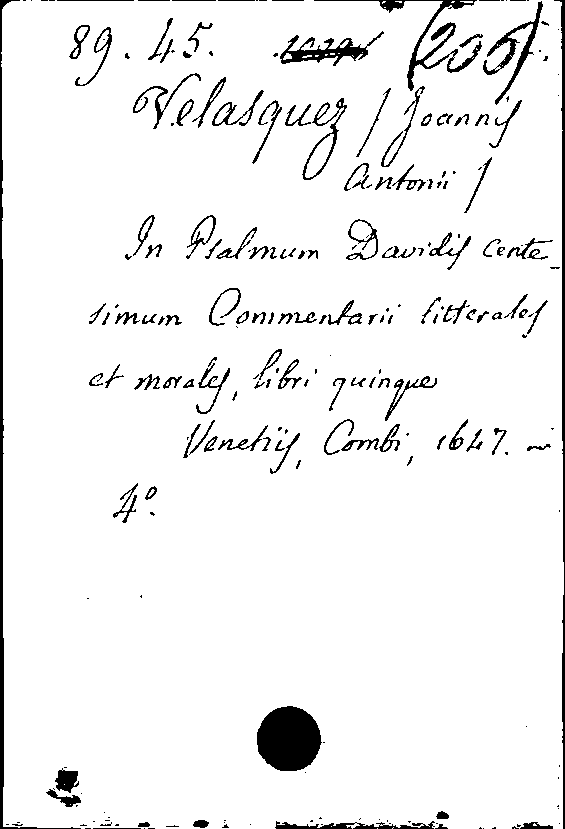 89. 45. (206).
Velasquez / Joannis
Antonii /
In Psalmum Davidis cente_
simum Commentarii litterales
et morales, libri quinque
Venetiis, Combi, 1647. in
4º.